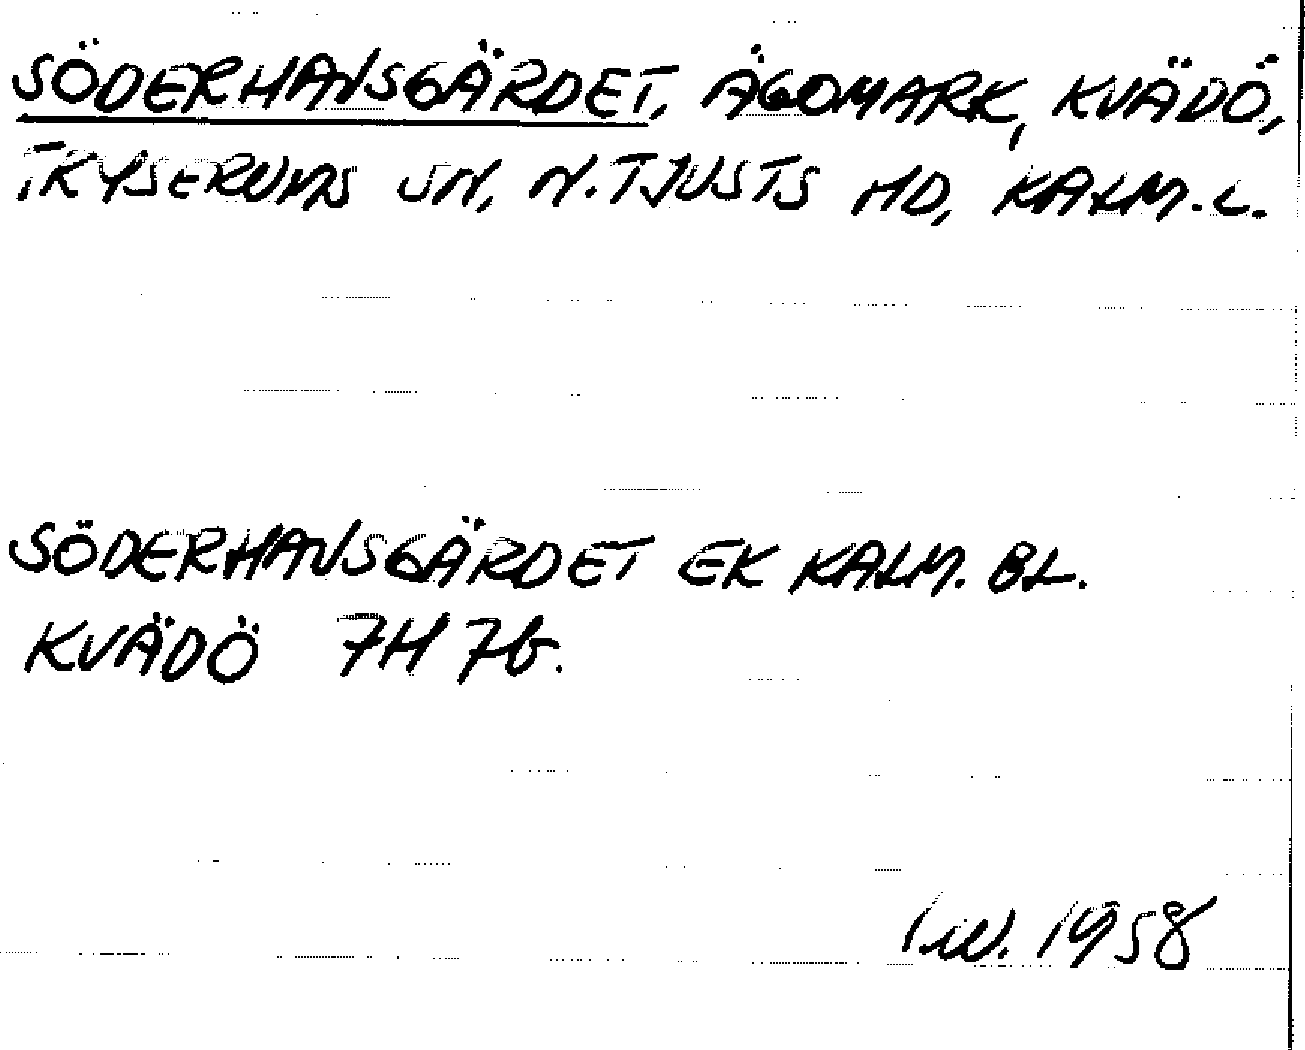 SÖDERHANSGÄRDET, ÄGOMARK, KVÄDÖ,
TRYSERUMS SN, N. TJUSTS HD, KALM. L.
SÖDERHANSGÄRDET EK KALM. BL.
KVÄDÖ 7H 7b.
Inv. 1958